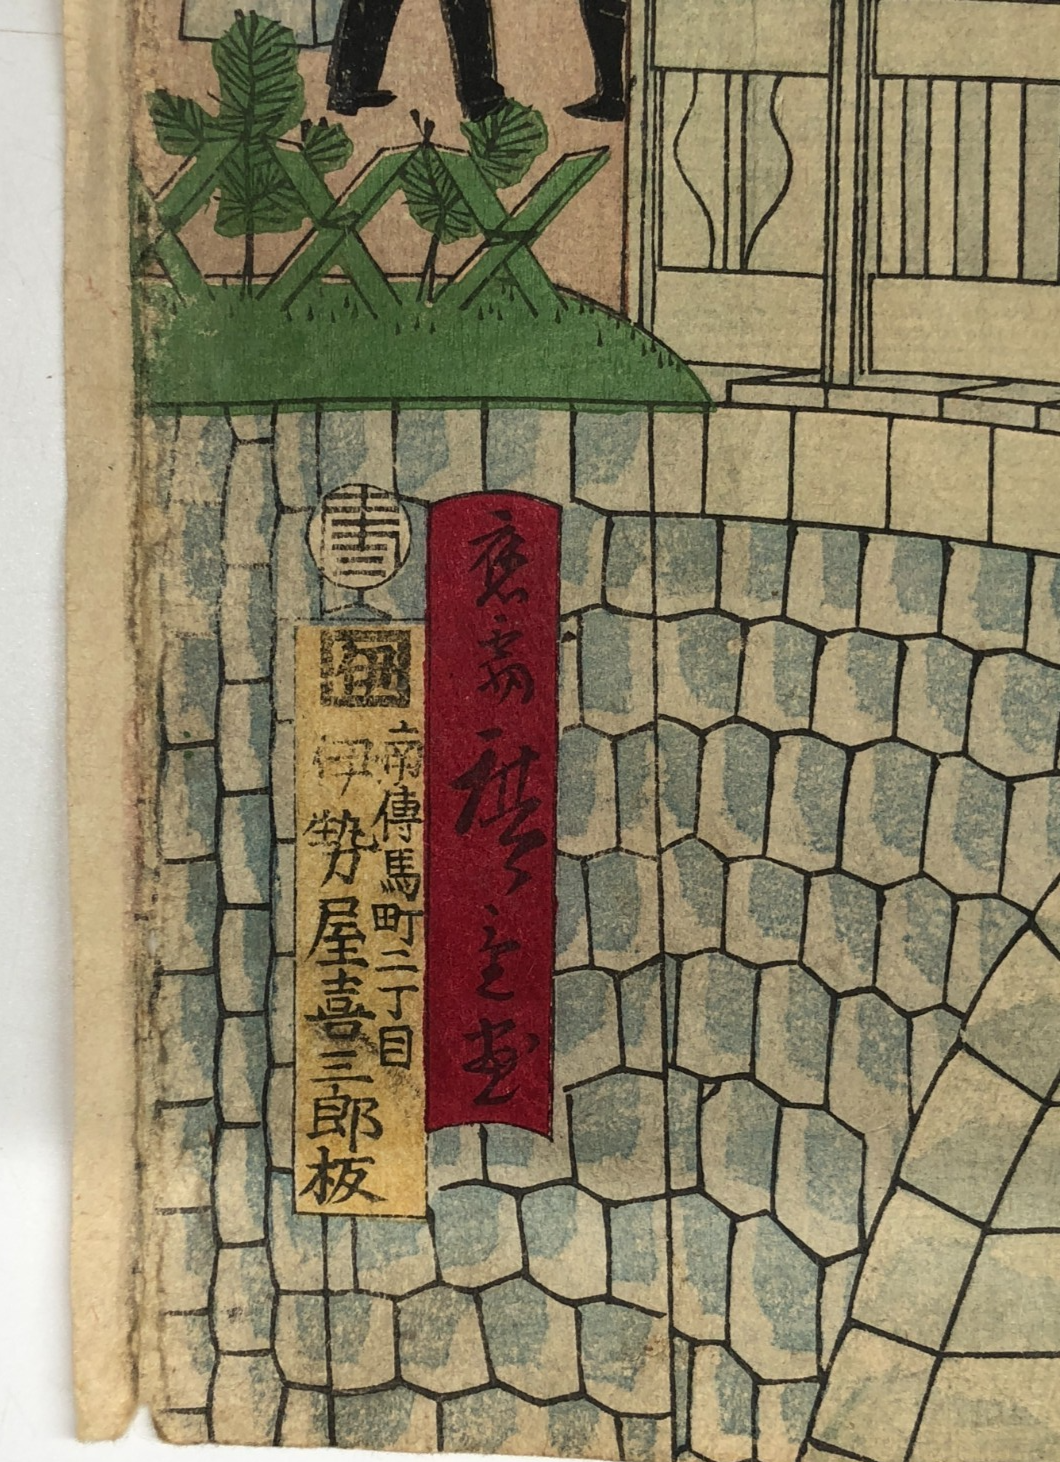 應需廣重画
南傳馬町二丁目
伊勢屋喜三郎板
伊